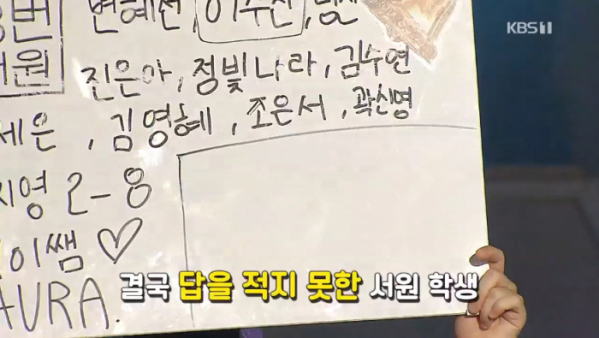 변혜선, 이수진,
KBS1
서원
진은아, 정빛나라, 김수연
세은, 김영혜, 조은서, 곽신영
지영 2-8
이쌤♡
AURA.
결국 답을 적지 못한 서원 학생